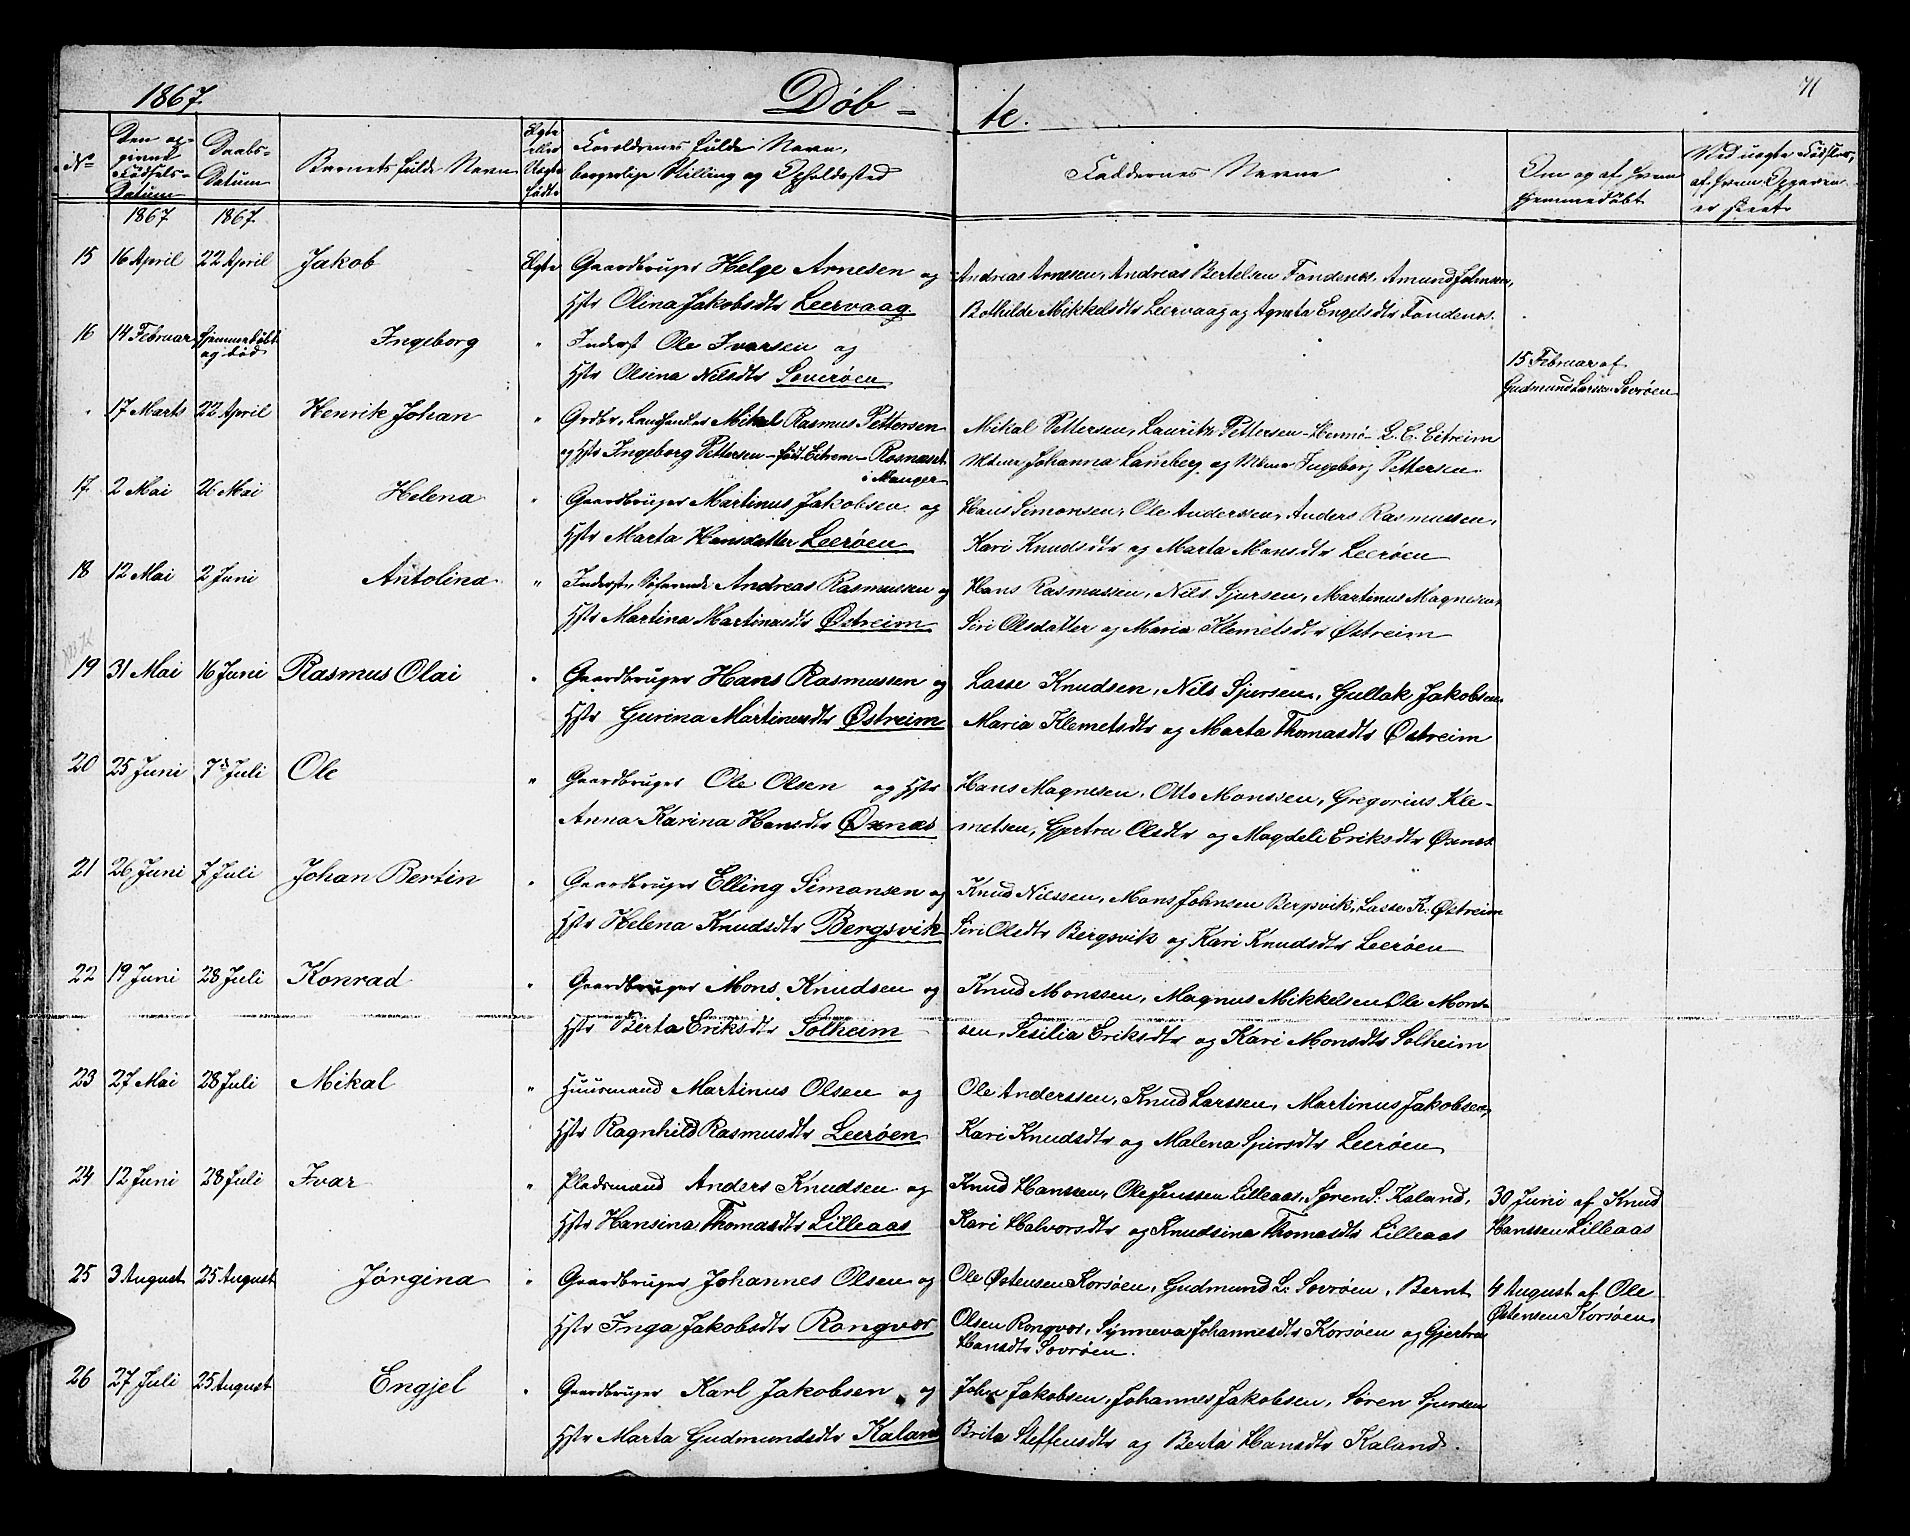 1867. Døb- te. 71
No Den opgivne Fødsels-Datum Daabs-Datum Barnets fulde Navn Egte eller Uegte født Foreldrenes fulde Navn, borgerlige Stilling og Opholdssted Faddernes Navne Om og af hvem hjemmedøbt Ved uegte Fødsler, af hvem Opgaven er skeet
1867 1867
15 16 April 22 April Jakob Egte Gaardbruger Helge Arnesen og Andreas Arnesen, Andreas Bertelsen Fondenes, Amund Johnsen,
Hstr Olina Jakobsdtr Leervaag. Bothilde Mikkelsdtr Leervaag og Agneta Engelsdtr Fondenes.
16 14 Februar Hjemmedøbt og død Ingeborg " Inderst Ole Ivarsen og
Hstr Olsina Nilsdtr Soverøen 15 Februar af Gudmund Larsen Sovrøen
" 17 Marts 22 April Henrik Johan " Grdbr, Landhandler Mikal Rasmus Pettersen Mikal Pettersen, Lauritz Pettersen Herma L. C. Eitreim
og Hstr Ingeborg Pettersen født Eitrem Rosnæset i Manger Johanna Lamberg og Ingeborg Pettersen.
17 2 Mai 26 Mai Helena " Gaardbruger Martinus Jakobsen og Hans Simonsen, Ole Anderssen, Anders Rasmussen,
Hstr Marta Hansdatter Leerøen Kari Knudsdtr og Marta Mansdtr Leerøen
18 12 Mai 2 Juni Antolina " Inderst, Søfarende Andreas Rasmussen og Hans Rasmussen, Nils Sjursen, Martinus Magnesen,
Hstr Martina Martinusdtr Østreim Siri Olsdatter og Maria Klemetsdtr Østreim
19 31 Mai 16 Juni Rasmus Olai " Gaardbruger Hans Rasmussen og Lasse Knudsen, Nils Sjursen, Gullak Jakobsen
Hstr Gurina Martinusdtr Østreim Maria Klemetsdtr og Marta Thomasdtr Østreim
20 25 Juni 7de Juli Ole " Gaardbruger Ole Olsen og Hstr Hans Magnesen, Otto Monssen, Gregorius Kle-
Anna Karina Hansdtr Øxnæs metsen, Gjertru Olsdtr og Magdeli Eriksdtr Øxnæs
21 26 Juni 7 Juli Johan Bertin " Gaardbruger Elling Simonsen og Knud Nilssen, Mons Johnsen Bergsvik, Lasse K. Østreim
Hstr Helena Knudsdtr Bergsvik Siri Olsdtr Bergsvik og Kari Knudsdtr Leerøen
22 19 Juni 28 Juli Konrad " Gaardbruger Mons Knudsen og Knud Monssen, Magnus Mikkelsen Ole Mons-
Hstr Berta Eriksdtr Solheim sen, Sesilia Eriksdtr og Kari Monsdtr Solheim
23 27 Mai 28 Juli Mikal " Huusmand Martinus Olsen og Ole Anderssen, Knud Larssen, Martinus Jakobsen,
Hstr Ragnhild Rasmusdtr Leerøen Kari Knudsdtr og Malena Sjursdtr Leerøen
24 12 Juni 28 Juli Ivar " Pladsmand Anders Knudsen og Knud Hanssen, Ole Jenssen Lilleaas, Søren S: Kaland, 30 Juni af Knud
Hstr Hansina Thomasdtr Lilleaas Kari Halvorsdtr og Knudsina Thomasdtr Lilleaas Hanssen Lilleaas
25 3 August 25 August Jørgina " Gaardbruger Johannes Olsen og Ole Østensen Korsøen, Gudmund L: Sovrøen, Bernt 4 August af Ole
Hstr Inga Jakobsdtr Rongvær Olsen Rongvær, Synneva Johannesdtr Korsøen og Gjertru Østensen Korsøen.
Hansdtr Sovrøen.
26 27 Juli 25 August Engjel " Gaardbruger Karl Jakobsen og John Jakobsen, Johannes Jakobsen, Søren Sjursen
Hstr Marta Gudmundsdtr Kaland Brita Steffensdtr og Berta Hansdtr Kaland.